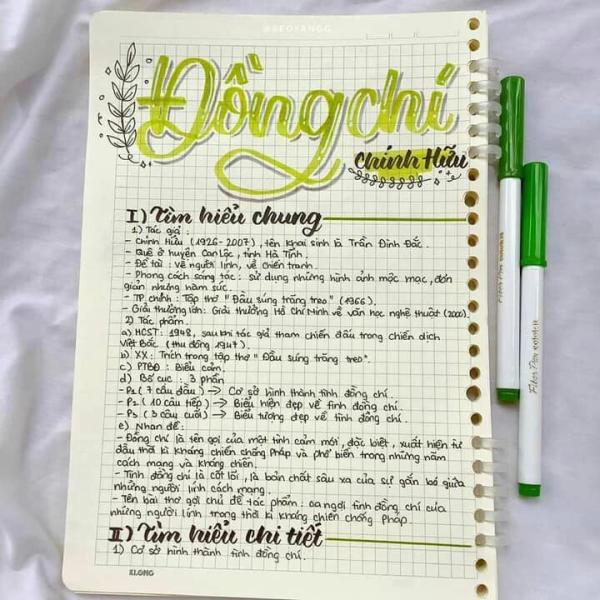 @SEOYANGG
Đồng chí
Chính Hữu
I) Tìm hiểu chung
1) Tác giả :
- Chính Hữu (1926-2007), tên khai sinh là Trần Đình Đắc.
- Quê ở huyện Can Lộc, tỉnh Hà Tĩnh.
- Đề tài : về người lính, về chiến tranh.
- Phong cách sáng tác : sử dụng những hình ảnh mộc mạc, đơn
giản nhưng hàm súc.
- TP chính : Tập thơ "Đầu súng trăng treo" (1966).
- Giải thưởng lớn: Giải thưởng Hồ Chí Minh về văn học nghệ thuật (2000).
2) Tác phẩm.
a) HCST: 1948, sau khi tác giả tham chiến đấu trong chiến dịch
Việt Bắc (thu đông 1947).
b) XX: Trích trong tập thơ "Đầu súng trăng treo".
c) PTBĐ : Biểu cảm.
d) Bố cục : 3 phần
- P1 ( 7 câu đầu) -> Cơ sở hình thành tình đồng chí.
- P2 ( 10 câu tiếp) -> Biểu hiện đẹp về tình đồng chí.
- P3 ( 3 câu cuối) -> Biểu tượng đẹp về tình đồng chí.
e) Nhan đề :
- Đồng chí là tên gọi của một tình cảm mới, đặc biệt, xuất hiện từ
đầu thời kì kháng chiến chống Pháp và phổ biến trong những năm
cách mạng và kháng chiến.
- Tình đồng chí là cốt lõi, là bản chất sâu xa của sự gắn bó giữa
những người lính cách mạng.
- Tên bài thơ gợi chủ đề tác phẩm : ca ngợi tình đồng chí của
những người lính trong thời kì kháng chiến chống Pháp.
II) Tìm hiểu chi tiết
1) Cơ sở hình thành tình đồng chí.
KLONG
Fiber Pen
Fiber Pen